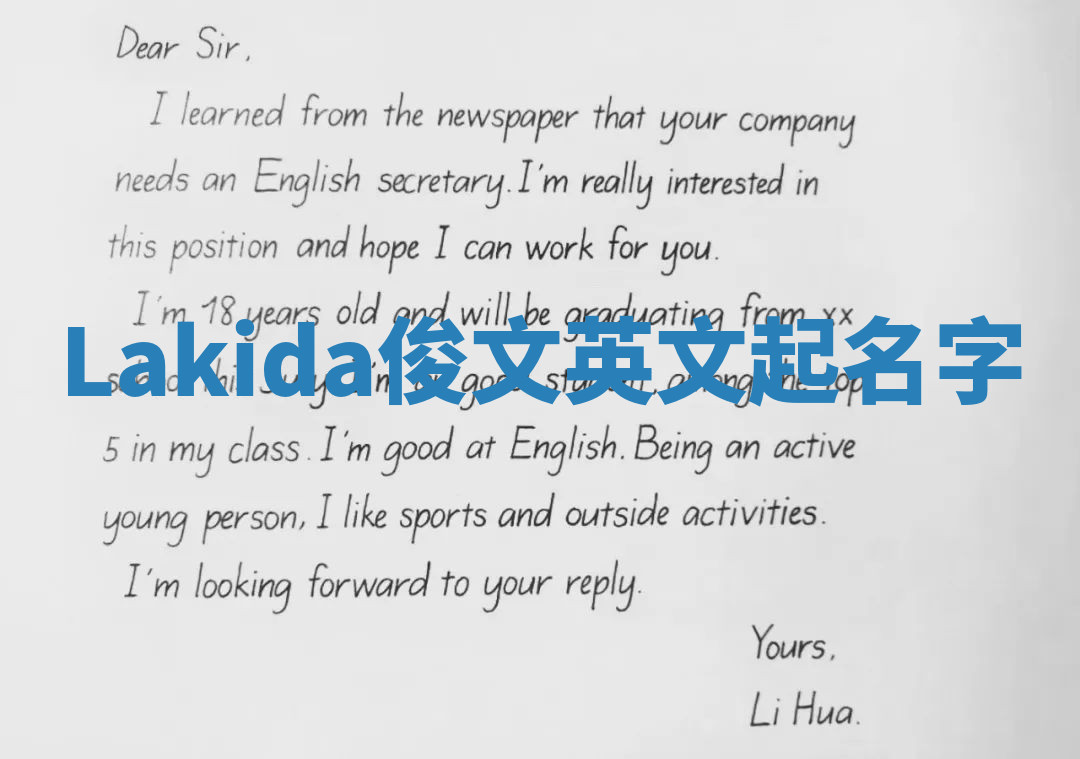 Dear Sir,
I learned from the newspaper that your company
needs an English secretary. I'm really interested in
this position and hope I can work for you.
I'm 18 years old and will be graduating from xx
Lakida俊文英文起名字
5 in my class. I'm good at English. Being an active
young person, I like sports and outside activities.
I'm looking forward to your reply.
Yours,
Li Hua.